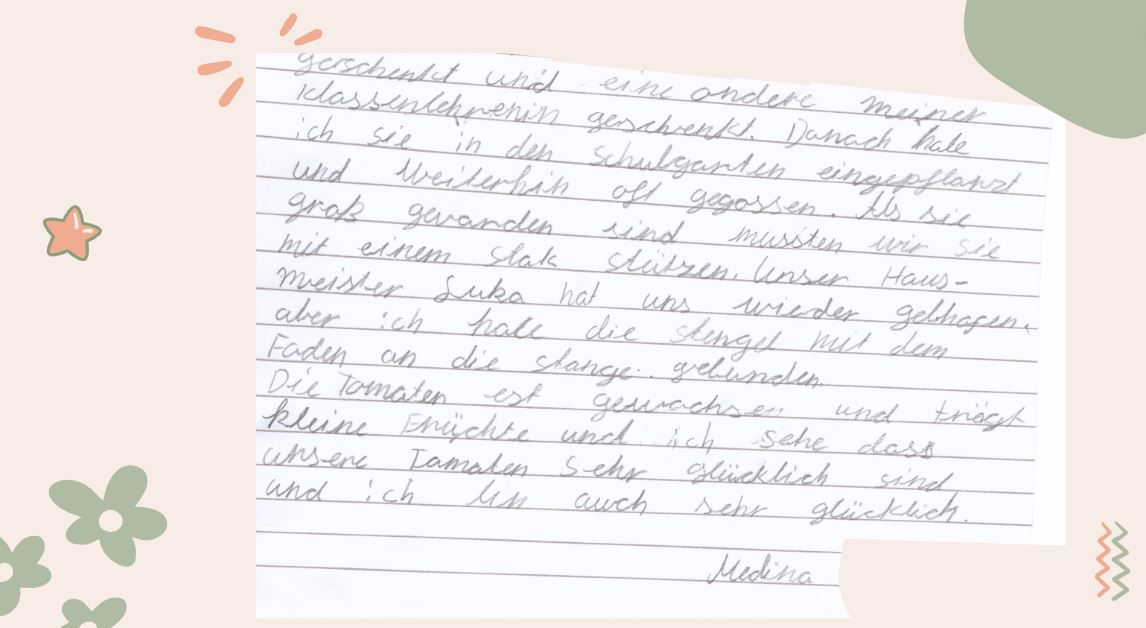 gerschenkt und eine andere meiner
Klassenlehrerin gerschenkt. Danach habe
ich sie in den Schulgarten eingepflanzt
und Weiterhin oft gegossen. Als sie
groß gewonden sind mussten wir sie
mit einem Stak stützen. Unser Haus-
meister Luka hat uns wieder gelhofen.
aber ich habe die stengel mit dem
Faden an die stange. gebunden
Die Tomaten est gewachsen und trägt
kleine Früchte und ich sehe dass
unsere Tomaten Sehr glücklich sind
und ich bin auch sehr glücklich.
Medina